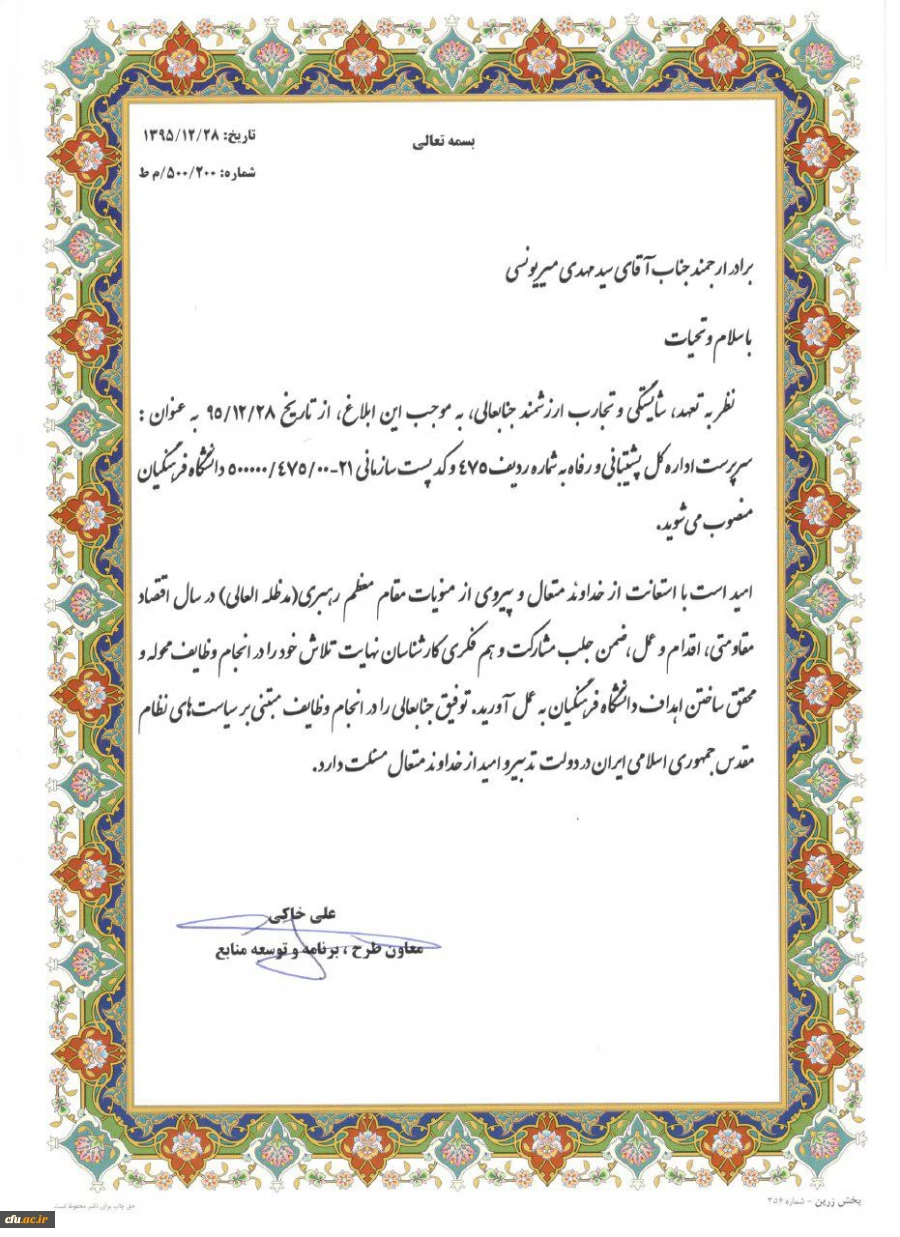 بسمه تعالی
تاریخ: ۱۳۹۵/۱۲/۲۸
شماره: ۵۰۰/۲۰۰/م ط
برادر ارجمند جناب آقای سید مهدی میریونسی
با سلام و تحیات
نظر به تعهد، شایستگی و تجارب ارزشمند جنابعالی، به موجب این ابلاغ، از تاریخ ۹۵/۱۲/۲۸ به عنوان :
سرپرست اداره کل پشتیبانی و رفاه به شماره ردیف ۴۷۵ و کد پست سازمانی ۲۱-۵۰۰۰۰۰/۴۷۵/۰۰ دانشگاه فرهنگیان
منصوب می شوید.
امید است با استعانت از خداوند متعال و پیروی از منویات مقام معظم رهبری(مدظله العالی) در سال اقتصاد
مقاومتی، اقدام و عمل، ضمن جلب مشارکت و هم فکری کارشناسان نهایت تلاش خود را در انجام وظایف محوله و
محقق ساختن اهداف دانشگاه فرهنگیان به عمل آورید. توفیق جنابعالی را در انجام وظایف مبتنی بر سیاست های نظام
مقدس جمهوری اسلامی ایران در دولت تدبیر و امید از خداوند متعال مسئلت دارد.
علی خاکی
معاون طرح ، برنامه و توسعه منابع
پخش زرین - شماره ۳۵۴
حق چاپ برای ناشر محفوظ است
cfu.ac.ir